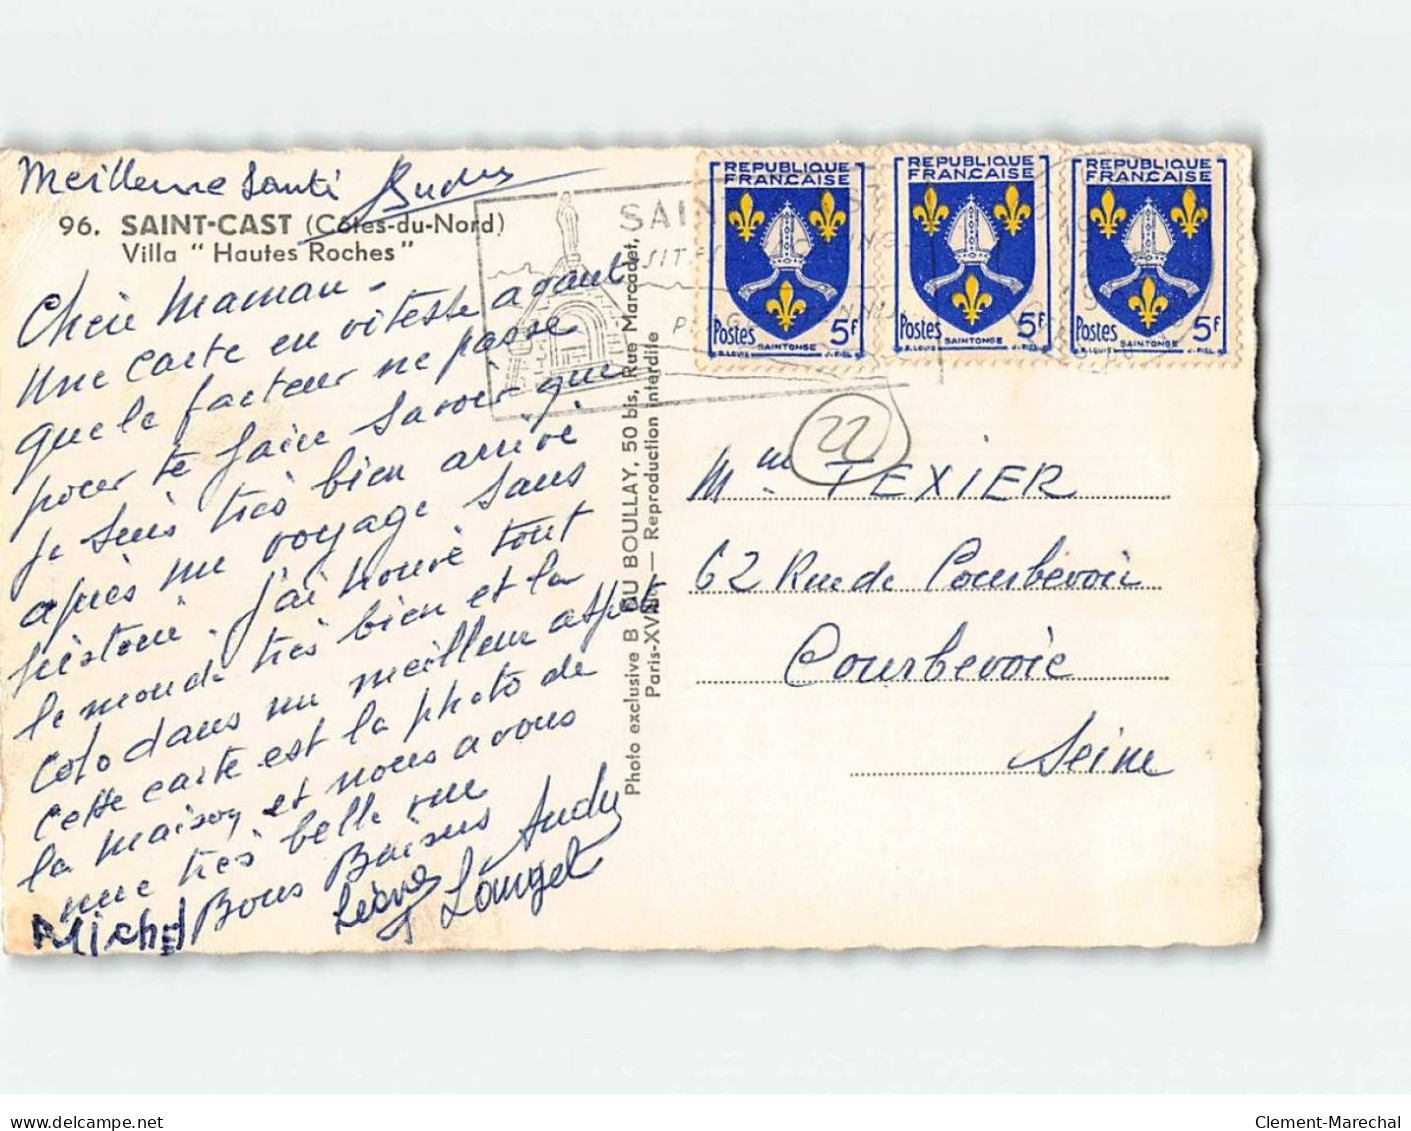 Meilleure Santé
96. SAINT-CAST (Côtes-du-Nord)
Villa " Hautes Roches "
Chère Maman -
Une carte en vitesse avant
que le facteur ne passe
pour te faire savoir que
je suis très bien arrivé
après un voyage sans
histoire. J'ai trouvé tout
le monde très bien et la
colo dans un meilleur aspect
cette carte est la photo de
la maison et nous avons
une très belle vue
Bons Baisers
Michel
Photo exclusive B DU BOULLAY, 50 bis, Rue Marcadet,
Paris-XVIIIe — Reproduction interdite
REPUBLIQUE
FRANÇAISE
Postes 5F
SAINTONGE
REPUBLIQUE
FRANÇAISE
Postes 5F
SAINTONGE
REPUBLIQUE
FRANÇAISE
Postes 5F
SAINTONGE
22
Mme TEXIER
62 Rue de Courbevoie
Courbevoie
Seine
delcampe.net
Clement-Marechal